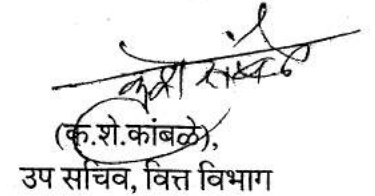 (क.शे.कांबळे),
उप सचिव, वित्त विभाग